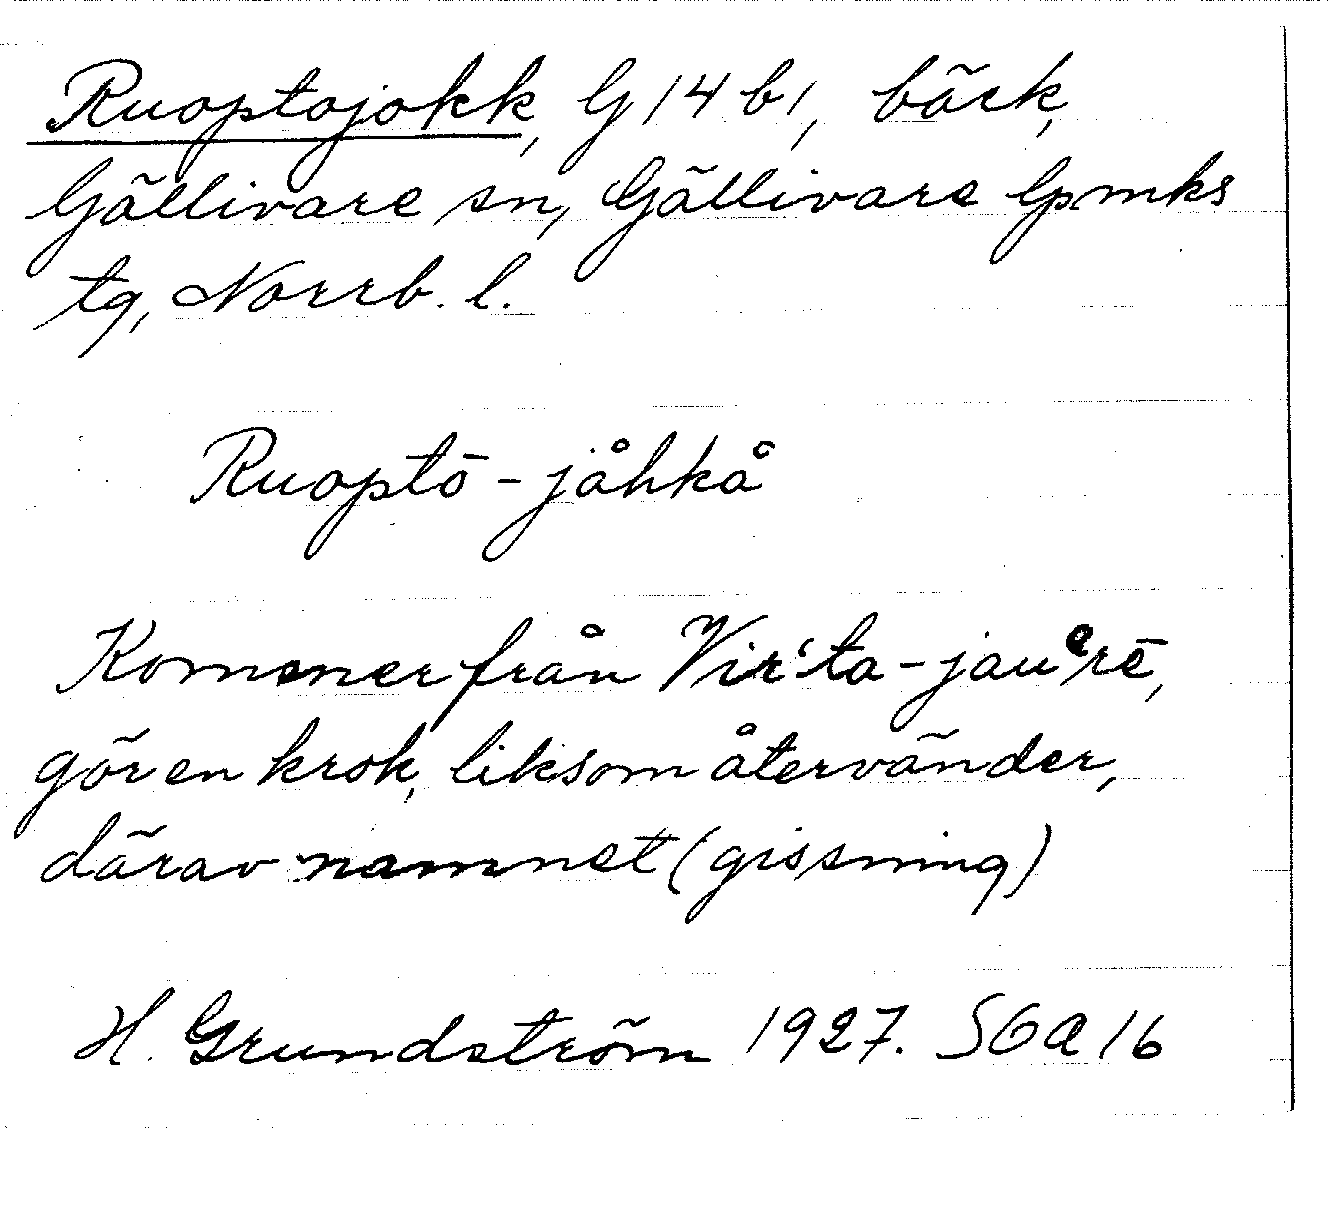 Ruoptojokk, G 14 b 1, bäck,
Gällivare sn, Gällivare lpmks
tg, Norrb. l.
Ruoptō-jåhkå
Kommer från Vir'ta-jauᵉrē,
gör en krok, liksom återvänder,
därav namnet (gissning)
H. Grundström 1927. SOA 16